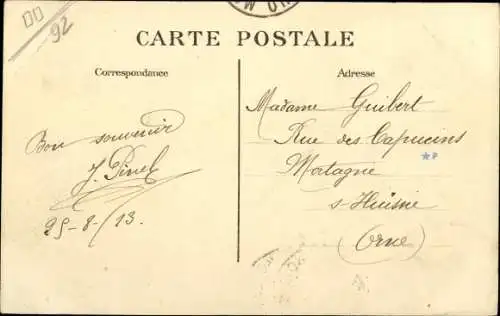 00
92
CARTE POSTALE
Correspondance
Adresse
Bon souvenir
J. Pinel
25-8-/13.
Madame Guibert
Rue des Capucins
Mortagne
s-Huisne
(Orne)